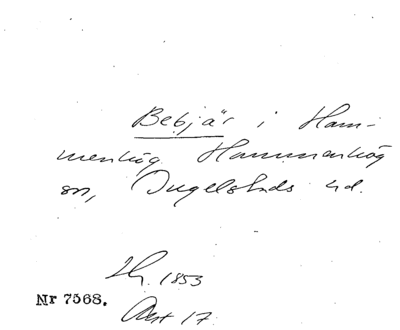 Bebjär i Ham-
menhög Hammenhög
sn, Ingelstads hd.
1853
Nr 7568.
17